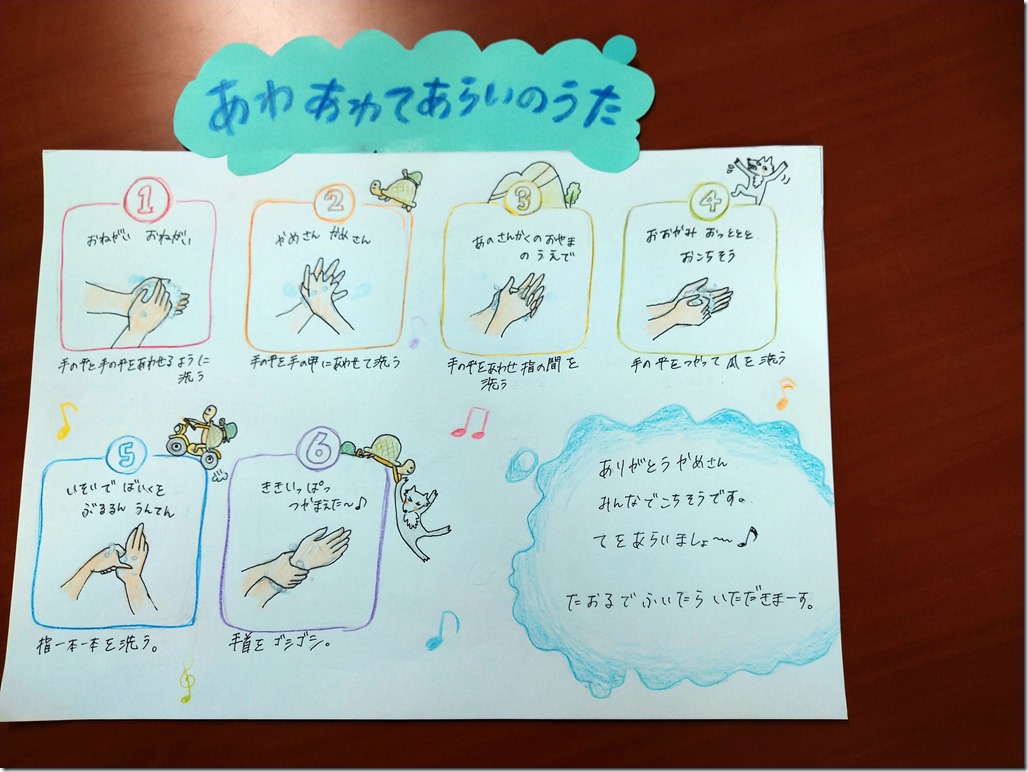 あわ あわてあらいのうた
1
おねがい おねがい
手の平と手の平をあわせるように
洗う
2
かめさん かめさん
手の平を手の甲にあわせて洗う
3
あのさんかくのおやま
のうえで
手の平をあわせ指の間を
洗う
4
おおかみ おっととと
おこちそう
手の平をつかって爪を洗う
5
いそいで ばいくを
ぶるるん うんてん
指一本一本を洗う。
6
ききいっぱつ
つかまえた〜♪
手首を ゴシゴシ。
ありがとう かめさん
みんなでごちそうです。
てをあらいましょ〜♪
たおるで ふいたら いただきまーす。